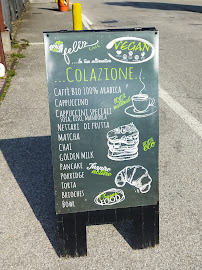 felix
VEGAN
...la tua alternativa
...COLAZIONE...
CAFFÈ BIO 100% ARABICA
CAPPUCCINO
CAPPUCCINI SPECIALI
SOIA, RISO, MANDORLA
NETTARI DI FRUTTA
MATCHA
CHAI
GOLDEN MILK
PANCAKE
PORRIDGE
TORTA
BRIOCHES
BOWL
FOOD